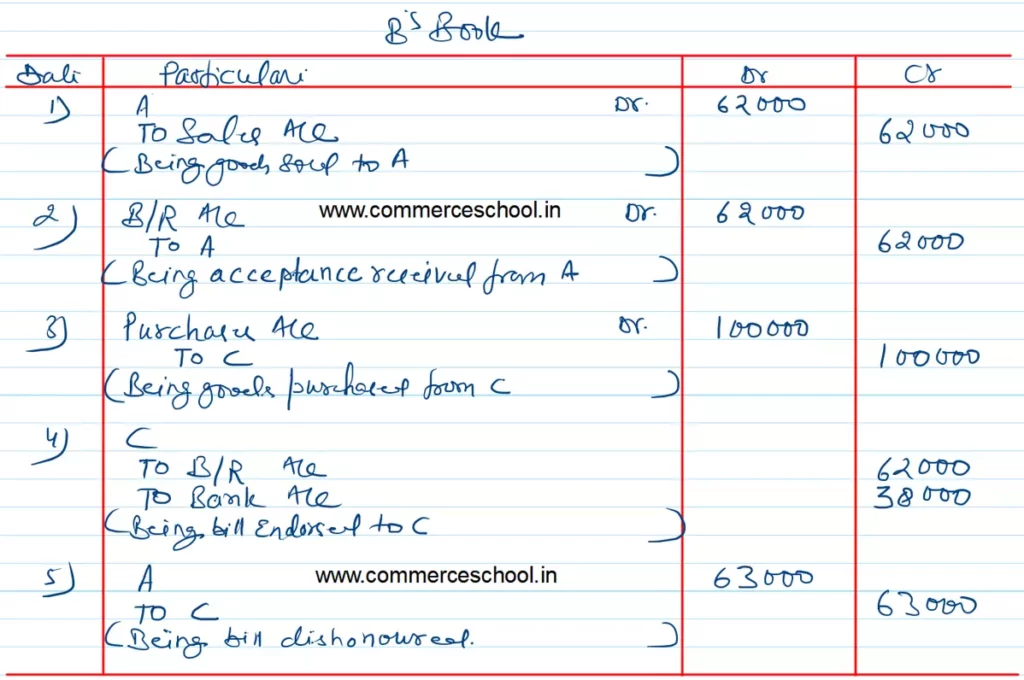 B's Book
Date Particulars Dr Cr
1) A Dr. 62000
To Sales A/c 62000
(Being goods sold to A)
2) B/R A/c www.commerceschool.in Dr. 62000
To A 62000
(Being acceptance received from A)
3) Purchase A/c Dr. 100000
To C 100000
(Being goods purchased from C)
4) C
To B/R A/c 62000
To Bank A/c 38000
(Being bill Endorsed to C)
5) A www.commerceschool.in 63000
To C 63000
(Being bill dishonoured.)